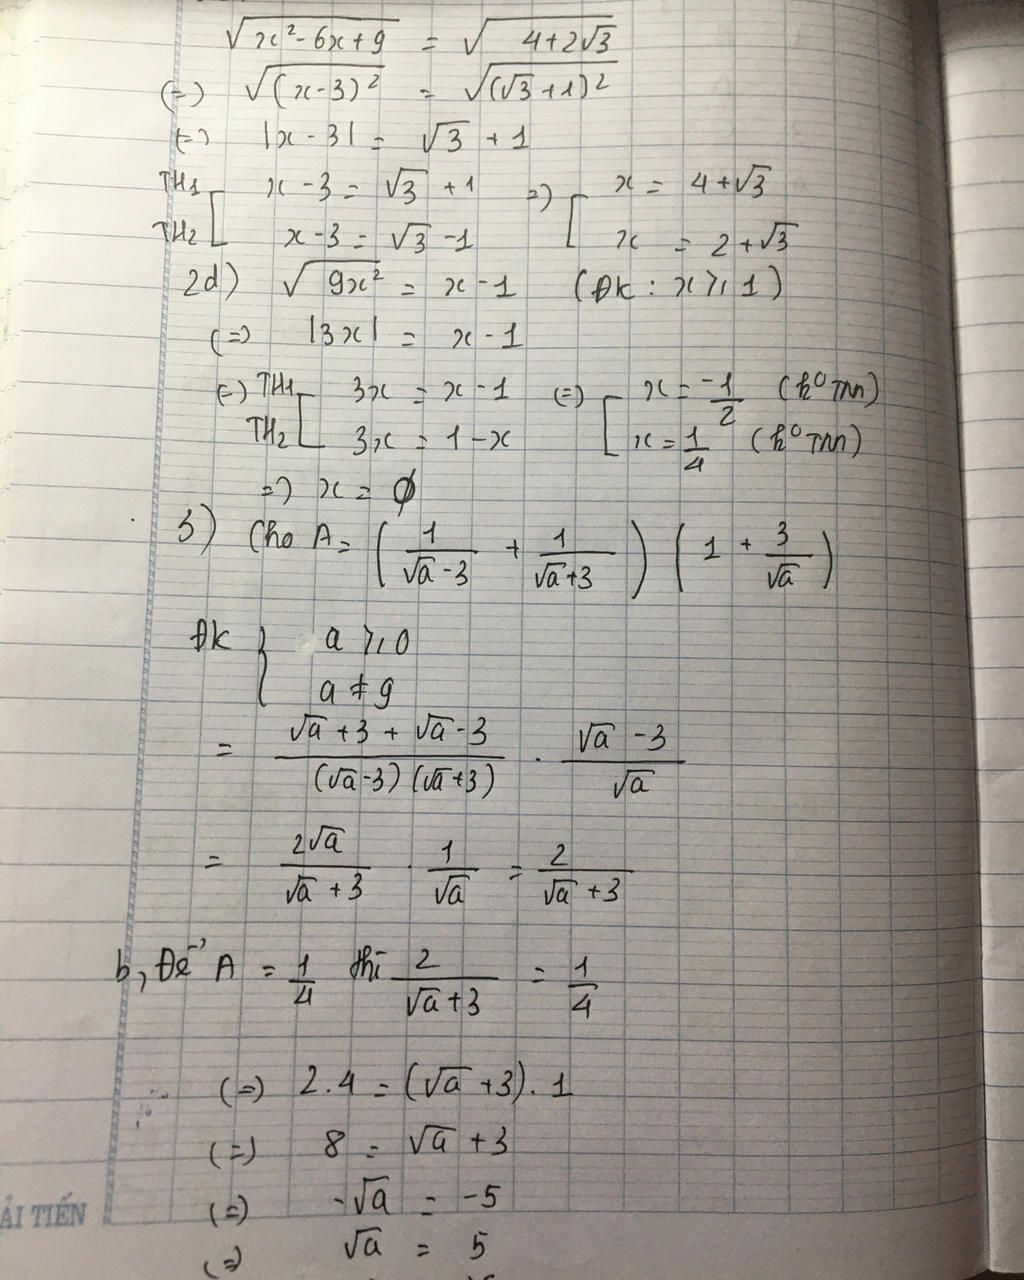 √(x² - 6x + 9) = √(4 + 2√3)
(=) √((x - 3)²) = √((√3 + 1)²)
(=) |x - 3| = √3 + 1
TH1 [ x - 3 = √3 + 1 =) [ x = 4 + √3
TH2 [ x - 3 = √3 - 1 [ x = 2 + √3
2d) √(9x²) = x - 1 (ĐK : x ⩾ 1)
(=) |3x| = x - 1
(=) TH1 [ 3x = x - 1 (=) [ x = -1/2 (k⁰ TMĐ)
TH2 [ 3x = 1 - x [ x = 1/4 (k⁰ TMĐ)
=) x = ∅
3) Cho A = (1/(√a - 3) + 1/(√a + 3)) (1 + 3/√a)
ĐK { a ⩾ 0
a ≠ 9
= (√a + 3 + √a - 3)/((√a - 3)(√a + 3)) . (√a - 3)/√a
= 2√a/(√a + 3) . 1/√a = 2/(√a + 3)
b, Để A = 1/4 thì 2/(√a + 3) = 1/4
(=) 2.4 = (√a + 3).1
(=) 8 = √a + 3
(=) -√a = -5
(=) √a = 5
ẢI TIẾN